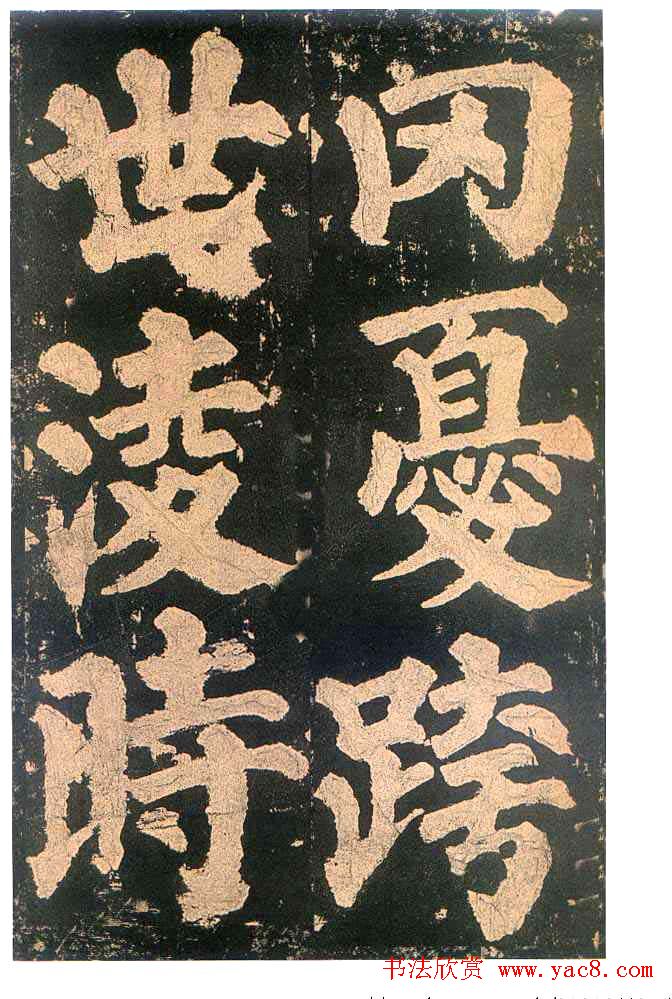 罔憂跨
世淩時
书法欣赏 www.yac8.com